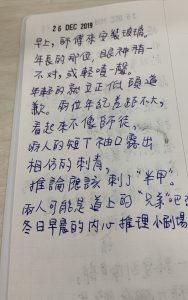 26 DEC 2019
早上,師傅來安裝玻璃。
年長的那位,眼神稍一
不对,或輕嘖一聲。
年輕的就立正低頭道
歉。兩位年紀差距不大,
看起來不像師徒,
兩人的短T袖口露出
相仿的刺青,
推論應該刺了"半甲"。
兩人可能是道上的"兄弟"吧?
冬日早晨的內心推理小劇場